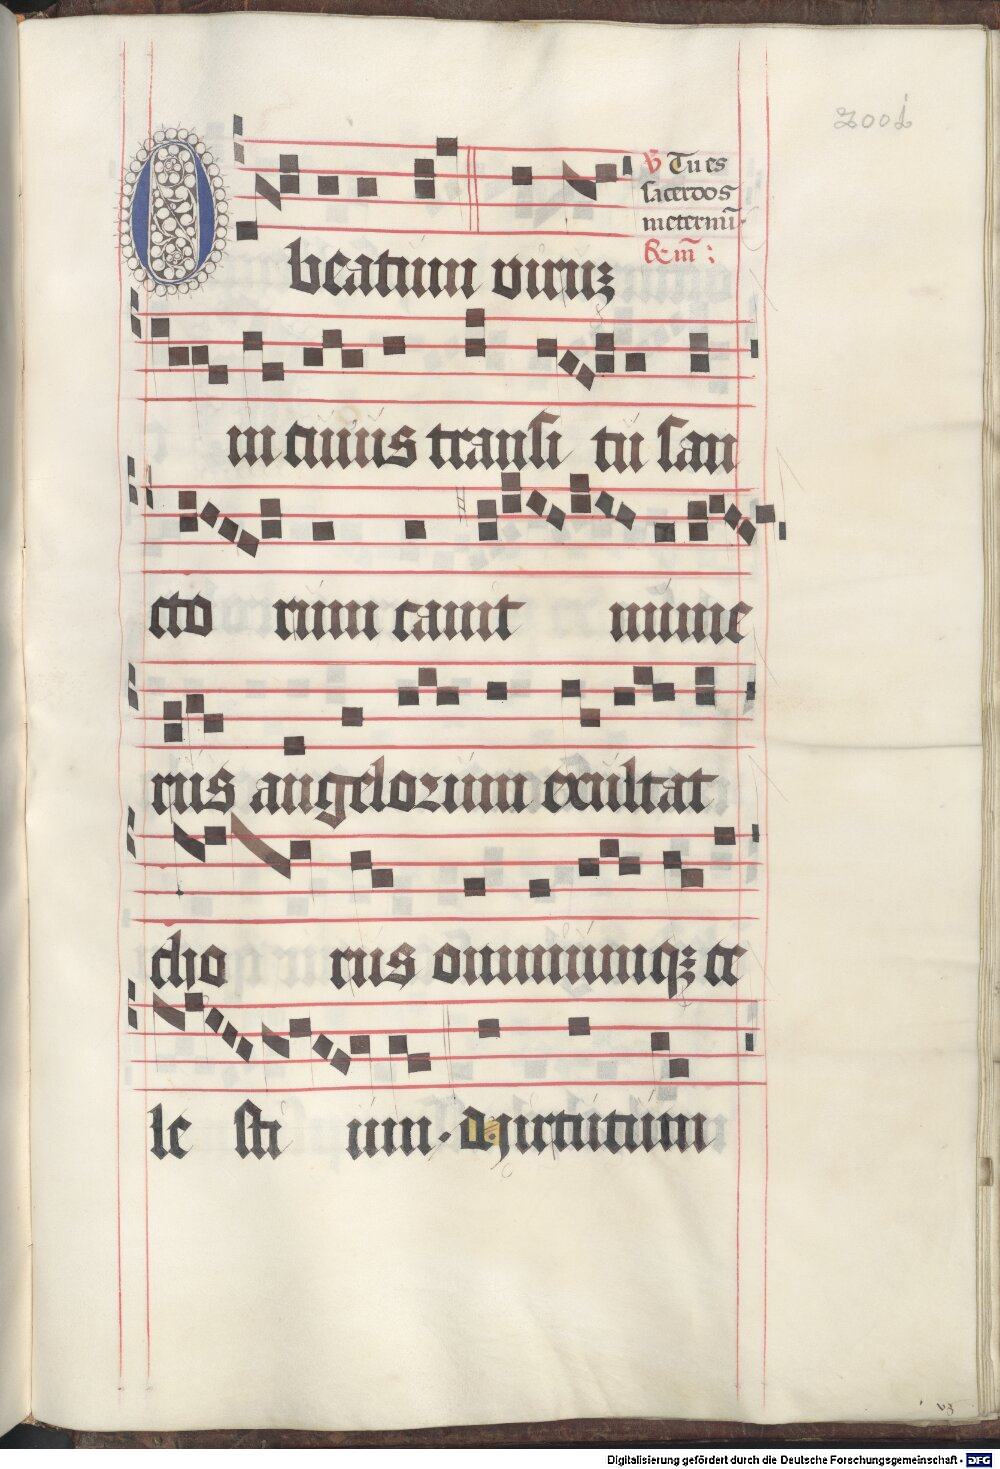 2001
O beatum viruȝ
℣ Tu es
sacerdos
ineternū.
℟ m̄ :
in cuius transi tu san
cto rum canit nume
rus angelorum exultat
cho rus omniumqȝ ce
le sti um. A virtutum
vȝ
Digitalisierung gefördert durch die Deutsche Forschungsgemeinschaft - DFG